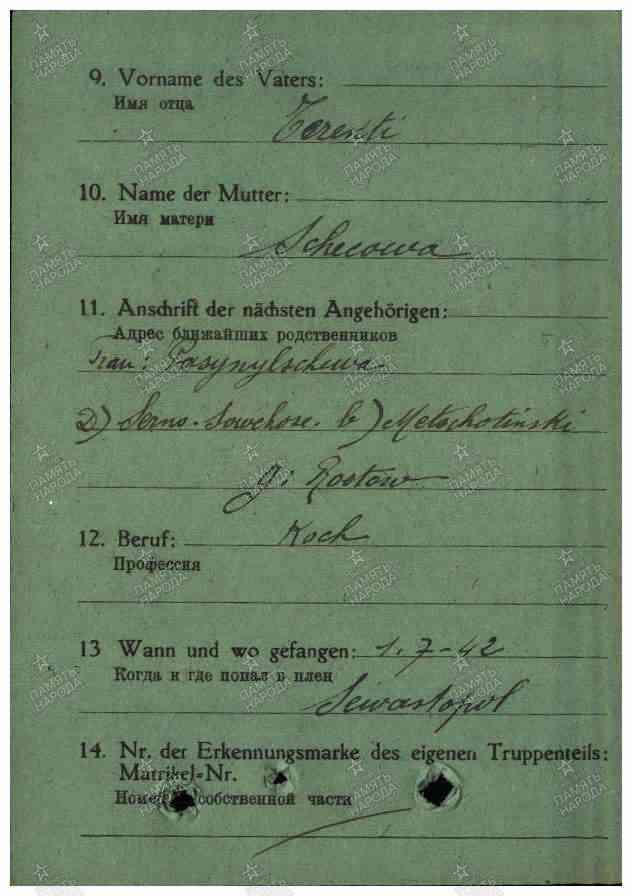 9. Vorname des Vaters:
Имя отца
Terenti
10. Name der Mutter:
Имя матери
Schecowa
11. Anschrift der nächsten Angehörigen:
Адрес ближайших родственников
Frau:
D) Serno-Sowchose. b) Metschotinski
g: Rostow
12. Beruf: Koch
Профессия
13 Wann und wo gefangen: 1. 7-42
Когда и где попал в плен
Sewastopol
14. Nr. der Erkennungsmarke des eigenen Truppenteils:
Matrikel=Nr.
Номер собственной части
ПАМЯТЬ НАРОДА